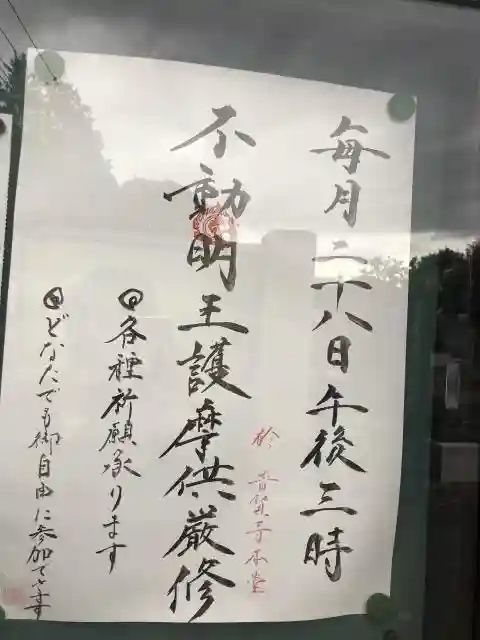 毎月二十八日午後三時
於 音賀寺本堂
不動明王護摩供厳修
◎各種祈願承ります
◎どなたでも御自由に参加できます